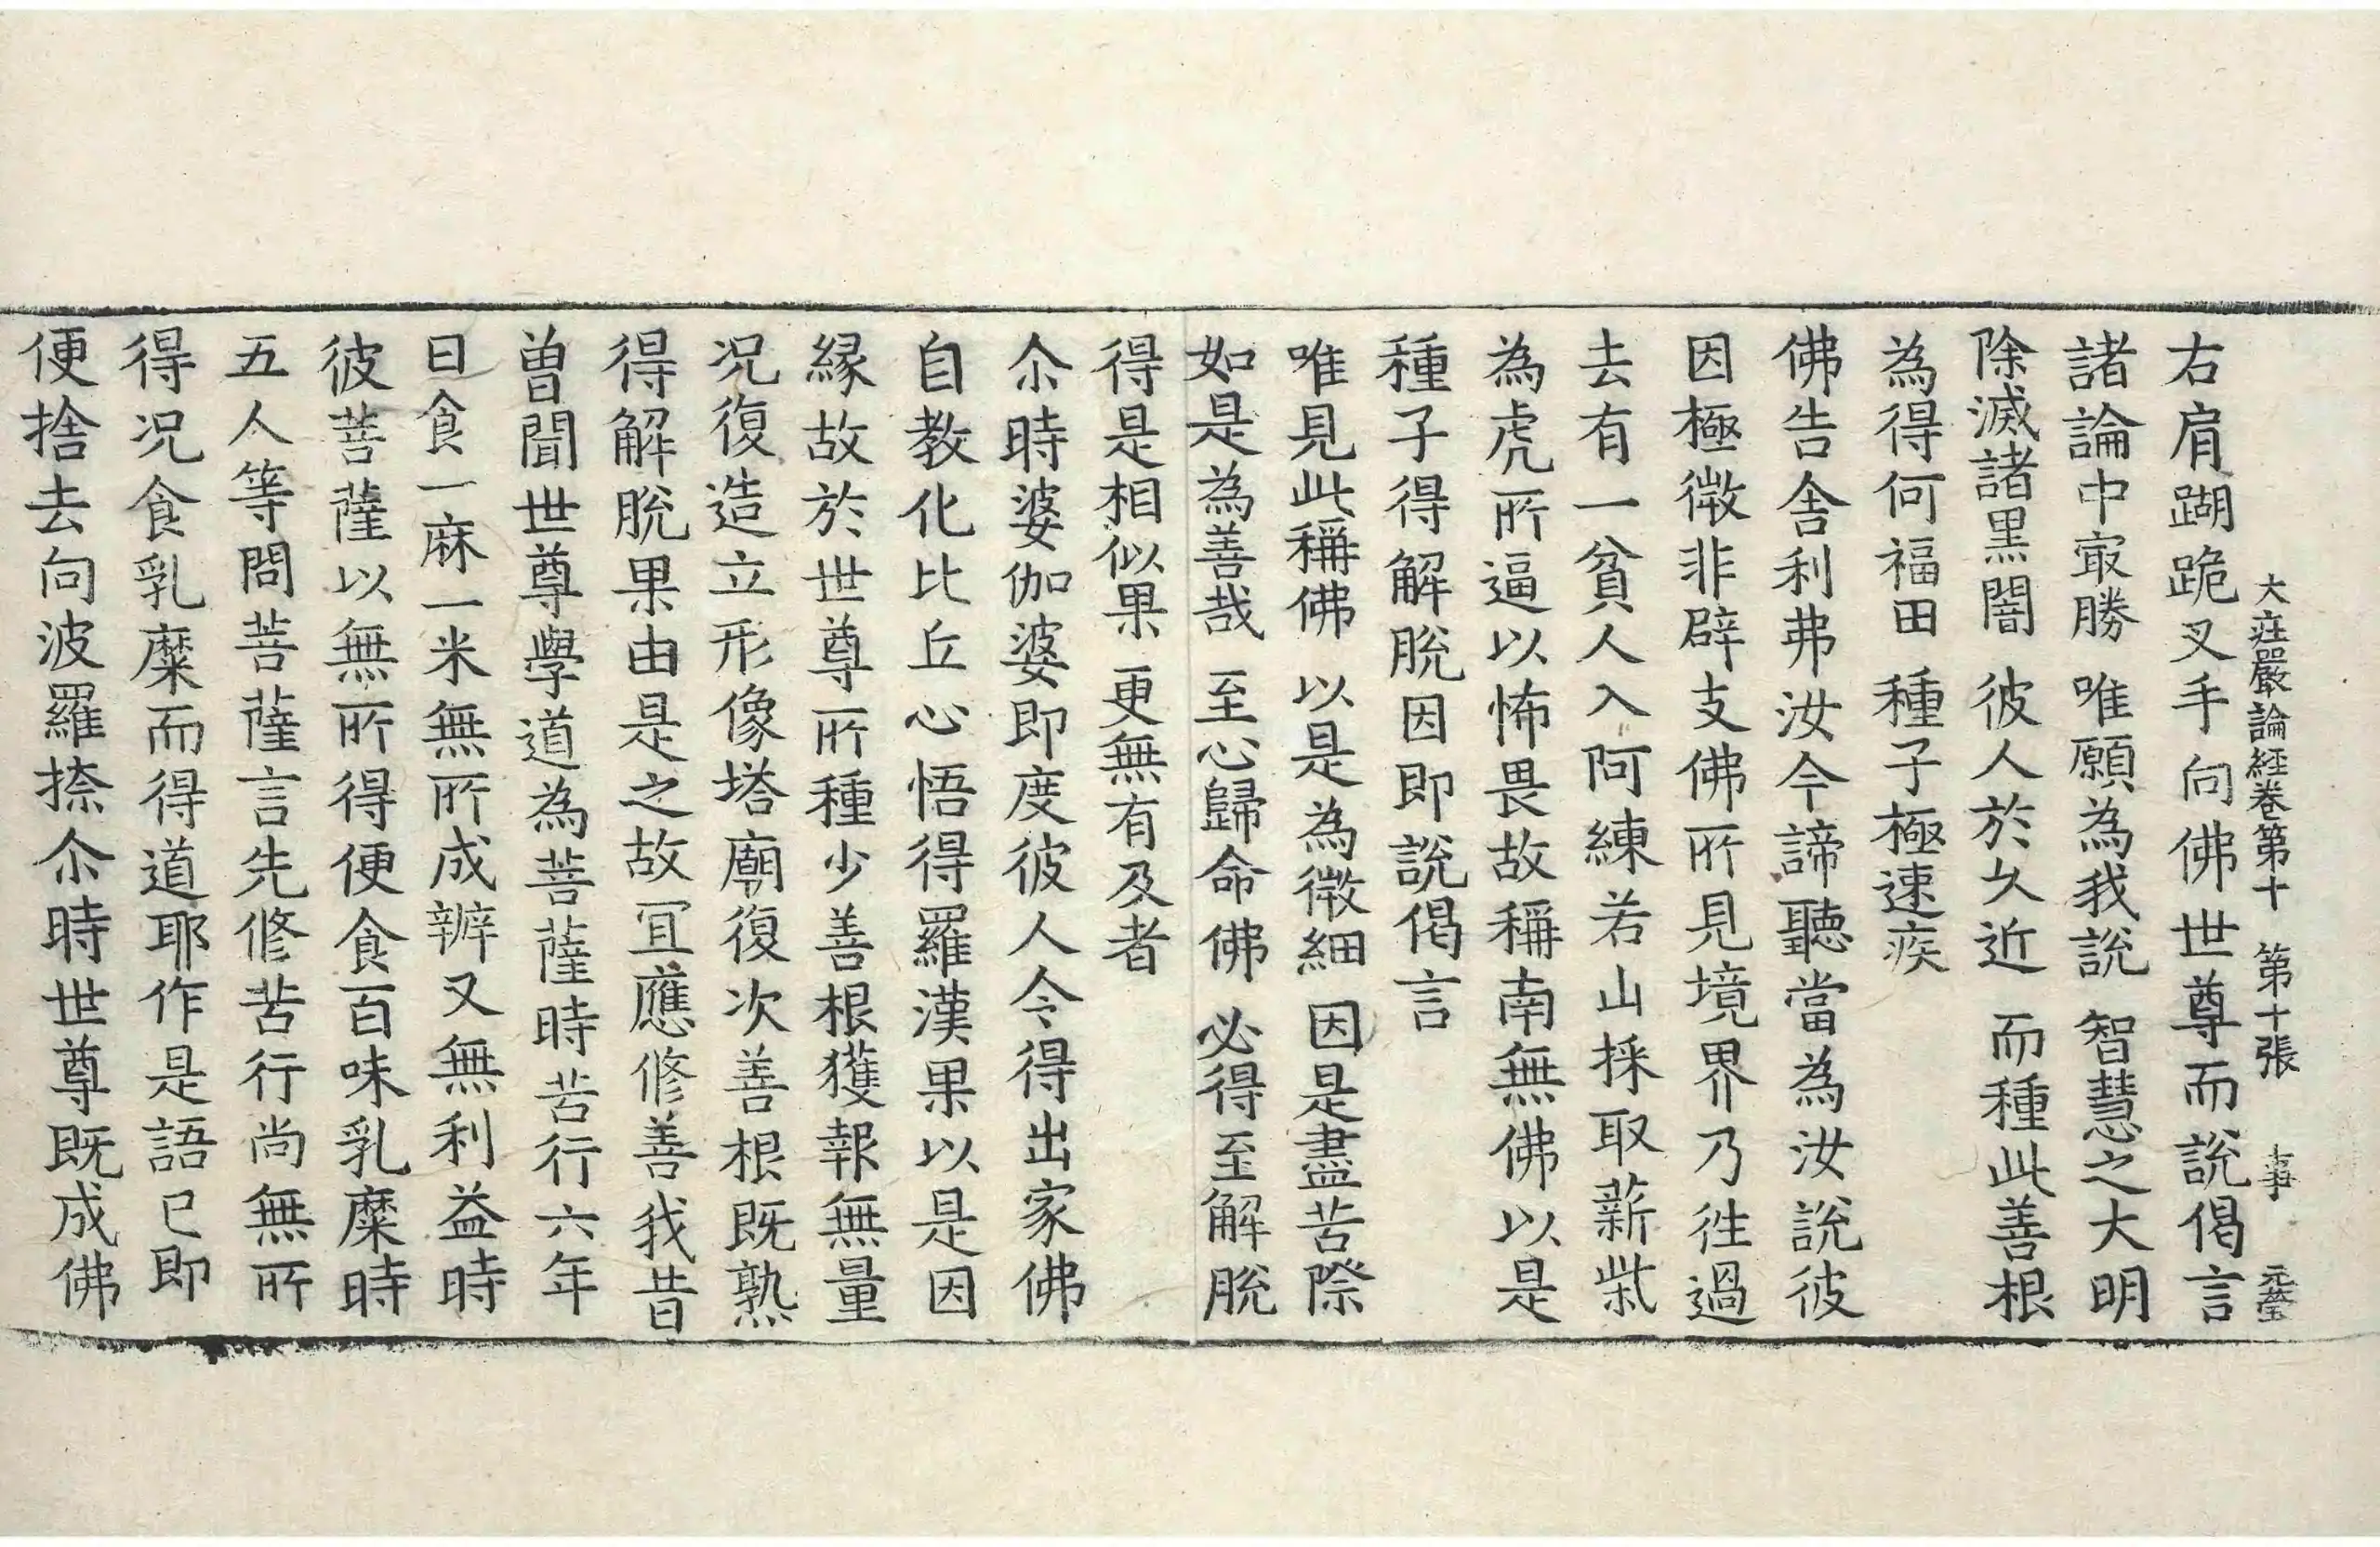 大庄嚴論経卷第十 第十張 事 元瑩
右肩蹦跪叉手向佛世尊而說偈言
諸論中㝡勝 唯願為我說 智慧之大明
除滅諸黑闇 彼人於久近 而種此善根
為得何福田 種子極速疾
佛告舎利弗汝今諦聽當為汝說彼
因極微非辟支佛所見境界乃徃過
去有一貧人入阿練若山採取薪柴
為虎所逼以怖畏故稱南無佛以是
種子得解脫因即說偈言
唯見此稱佛 以是為微細 因是盡苦際
如是為善哉 至心歸命佛 必得至解脫
得是相似果 更無有及者
尒時婆伽婆即度彼人令得出家佛
自教化比丘心悟得羅漢果以是因
縁故於世尊所種少善根獲報無量
况復造立形像塔廟復次善根既熟
得解脫果由是之故冝應修善我昔
曽聞世尊學道為菩薩時苦行六年
日食一麻一米無所成辦又無利益時
彼菩薩以無所得便食百味乳糜時
五人等問菩薩言先修苦行尚無所
得况食乳糜而得道耶作是語已即
便捨去向波羅捺尒時世尊既成佛